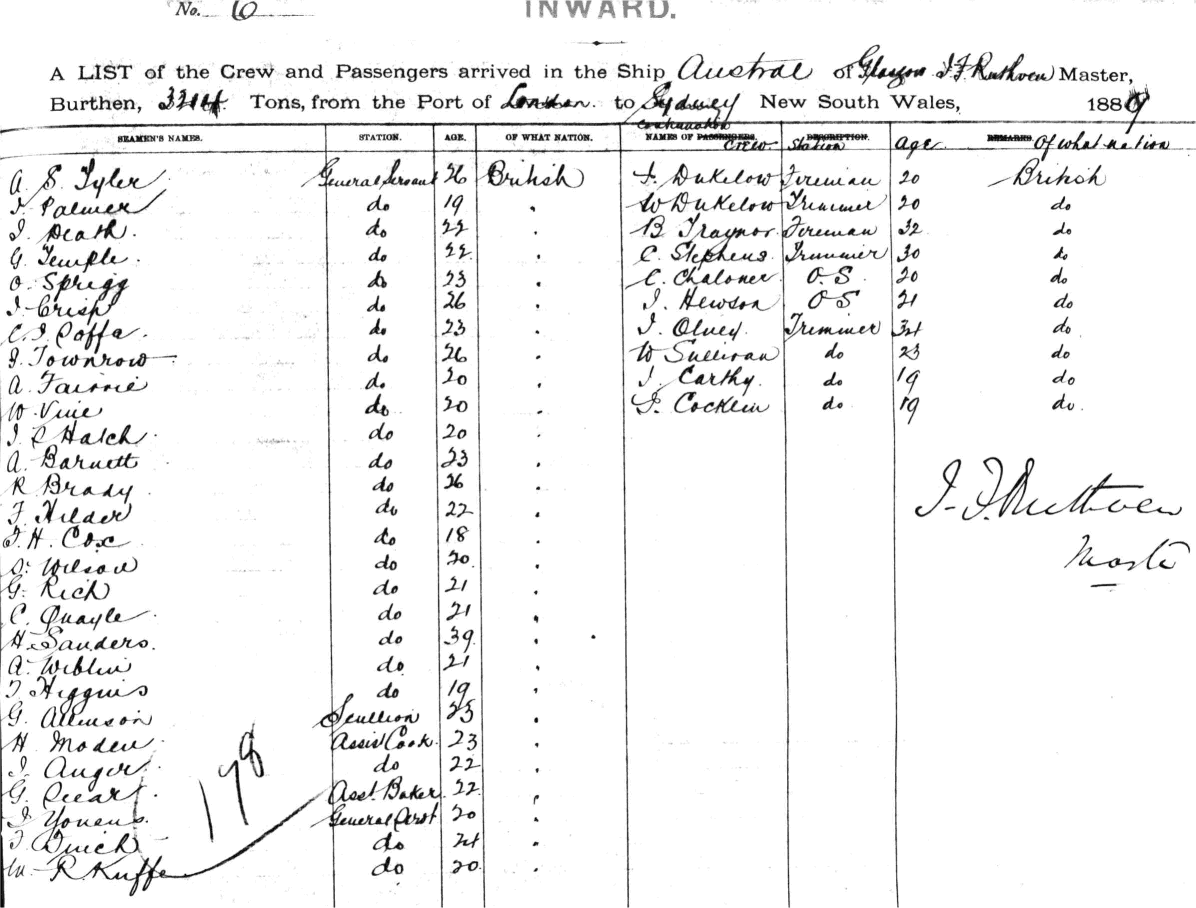 No. 6
INWARD.
A LIST of the Crew and Passengers arrived in the Ship Austral of Glasgow J. F. Ruthven Master,
Burthen, 3214 Tons, from the Port of London. to Sydney New South Wales, 1889
SEAMEN'S NAMES. STATION. AGE. OF WHAT NATION. continuation NAMES OF PASSENGERS. CREW DESCRIPTION. Station Age REMARKS. Of what nation
A. S. Tyler General Servant 26 British F. Dukelow Fireman 20 British
J. Palmer do 19 " W Dukelow Trimmer 20 do
J. Death. do 22 " B Traynor. Fireman 32 do
G. Temple. do 22 " C. Stephens. Trimmer 30 do
O. Sprigg do 23 " C. Chaloner O. S. 20 do
J. Crisp do 26 " J. Hewson O S 21 do
C. J. Poffa. do 23 " J. Olney. Trimmer 34 do
J. Townrow do 26 " W Sullivan do 23 do
A. Fairrie do 20 " J. Carthy. do 19 do
W. Vine do 20 " J. Cocklin do 19 do
J. Hatch. do 20 "
A. Barnett do 23 "
R Brady. do 26 "
F. Hilder do 22 "
F. H. Cox do 18 "
Wilson do 20 "
G. Rich do 21 "
C. Quayle do 21 "
H. Sanders. do 39 "
A. Weblin do 21 "
T. Higgins do 19 "
G. Atkinson Scullion 23 "
H. Moden Assist Cook 23 "
J. Anger. do 22 "
G. Asst. Baker 22 "
J. Youens. General Servt 20 "
T. Finch do 24 "
W. R Kuffe do 20 "
178
J. F. Ruthven
Master